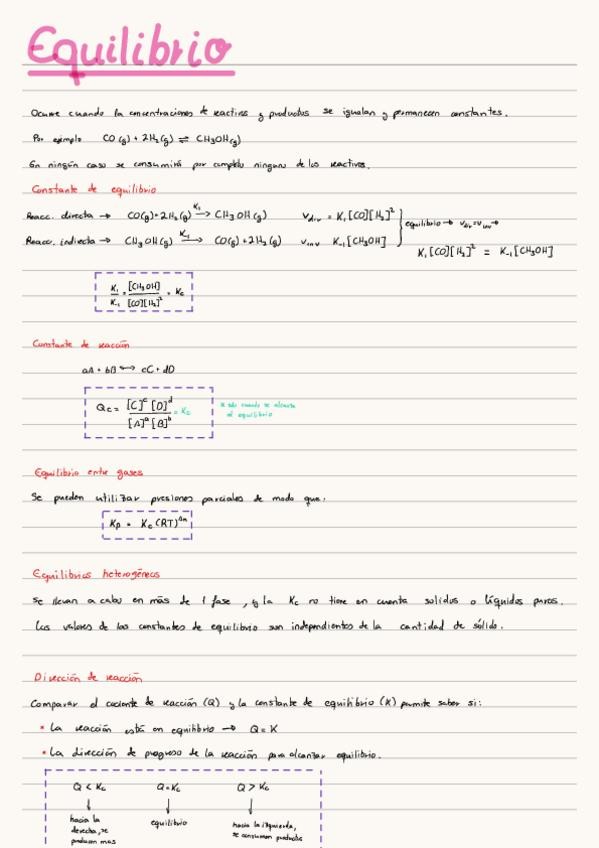 Equilibrio
Ocurre cuando la concentraciones de reactivos y productos se igualan y permanecen constantes.
Por ejemplo CO(g) + 2H₂(g) ⇌ CH₃OH(g)
En ningún caso se consumirá por completo ninguno de los reactivos.
Constante de equilibrio
Reacc. directa → CO(g) + 2H₂(g) —K₁→ CH₃OH(g) v_dir = K₁[CO][H₂]²
equilibrio → v_dir = v_inv →
Reacc. indirecta → CH₃OH(g) —K₋₁→ CO(g) + 2H₂(g) v_inv K₋₁[CH₃OH]
K₁[CO][H₂]² = K₋₁[CH₃OH]
K₁/K₋₁ = [CH₃OH]/[CO][H₂]² = Kc
Constante de reacción
aA + bB ↔ cC + dD
Qc = [C]ᶜ [D]ᵈ / [A]ᵃ [B]ᵇ = Kc
* solo cuando se alcanza
el equilibrio
Equilibrio entre gases
Se pueden utilizar presiones parciales de modo que:
Kp = Kc (RT)^Δn
Equilibrios heterogéneos
Se llevan a cabo en más de 1 fase, y la Kc no tiene en cuenta solidos o líquidos puros.
Los valores de las constantes de equilibrio son independientes de la cantidad de sólido.
Dirección de reacción
Comparar el cociente de reacción (Q) y la constante de equilibrio (K) permite saber si:
• La reacción está en equilibrio → Q = K
• La dirección de progreso de la reacción para alcanzar equilibrio.
Q < Kc Q = Kc Q > Kc
↓ ↓ ↓
hacia la derecha, se producen mas
equilibrio
hacia la izquierda, se consumen productos